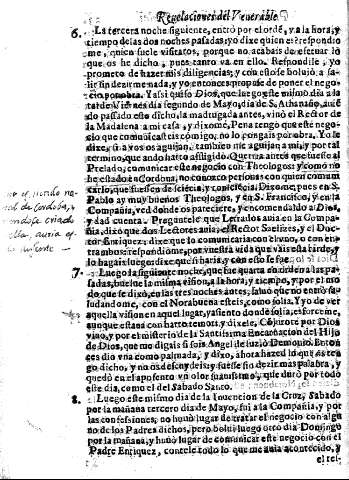 Reuelaciones del Venerable
6. La tercera noche siguiente, entrò por el orden, y a la hora, y
tiempo de las dos noches pasadas, y yo dixe quien es? respondio
me, quien suele visitaros, porque no acabais de efetuar lo
que os he dicho, pues tanto va en ello. Respondile, yo
prometo de hazer mis diligencias; y con esto se boluiò a sa-
lir sin dezirme nada, y yo entonces propuse de poner el nego-
cio por obra. Y assi quiso Dios, que luego este mismo dia a la
tarde Viernes dia segundo de Mayo, dia de S. Athanasio, auié
do passado esto dicho, la madrugada antes, vino el Rector de
la Madalena a mi casa, y dixome, Pena tengo que este nego-
cio que comunicasteis comigo, no lo pongais por obra. Yo le
dixe, si a vos os aguijan, tambien me aguijan a mi, y por tal
termino, que ando harto afligido. Querria antes que fuesse al
Prelado, comunicar este negocio con Theologos; y como no
he estado en Cordoua, no conozco personas con quien comuni
carlo, que fuessen de sciécia, y cóciécia. Dixome, pues en S.
Pablo ay muy buenos Theologos, y en S. Francisco, y en la
Compañia, ved donde os pareciere, y encomendadlo a Dios,
y dad cuenta. Preguntele que Letrados auia en la Compa-
ñia, dixo que dos Lectores auia, el Rector Saelizes, y el Doc-
tor Enriquez: dixe que lo comunicaria con el vno, o con en-
trambos: respondiome, por vuestra vida que vais esta tarde, y
lo hagais luego: dixe que si haria, y con esto se fue.
7. Luego la siguiente noche, que fue quarta en orden a las pa-
sadas, buelue la misma vision, a la hora, y tiempo, y por el mo
do que se dixo, en las tres noches antes, saluo que no entrò sa-
ludandome, con el Norabuena esteis, como solia. Y yo de ver
aquella vision en aquel lugar, y asiento donde solia, esforceme,
aunque estaua con harto temor, y dixele, Cójurote por Dios
viuo, y por el misterio de la Santissima Encarnacion del Hijo
de Dios, que me digais si sois Angel de luz, ò Demonio. Enton
ces dio vna como palmada, y dixo, ahora hazed lo que os ten
go dicho, y no os descuydeis; y fuesse sin dezir mas palabra, y
quedò en el aposento vn olor suauissimo, que durò por todo
este dia, como el del Sabado Santo.
8. Luego este mismo dia de la Inuencion de la Cruz, Sabado
por la mañana tercero dia de Mayo, fui a la Compañia, y por
las confessiones, no huuo lugar de tratar el negocio con algu
no de los Padres dichos, pero boluí luego otro dia Domingo
por la mañana, y huuo lugar de comunicar este negocio con el
Padre Enriquez, contele todo lo que me auia acontecido, y
el rei-